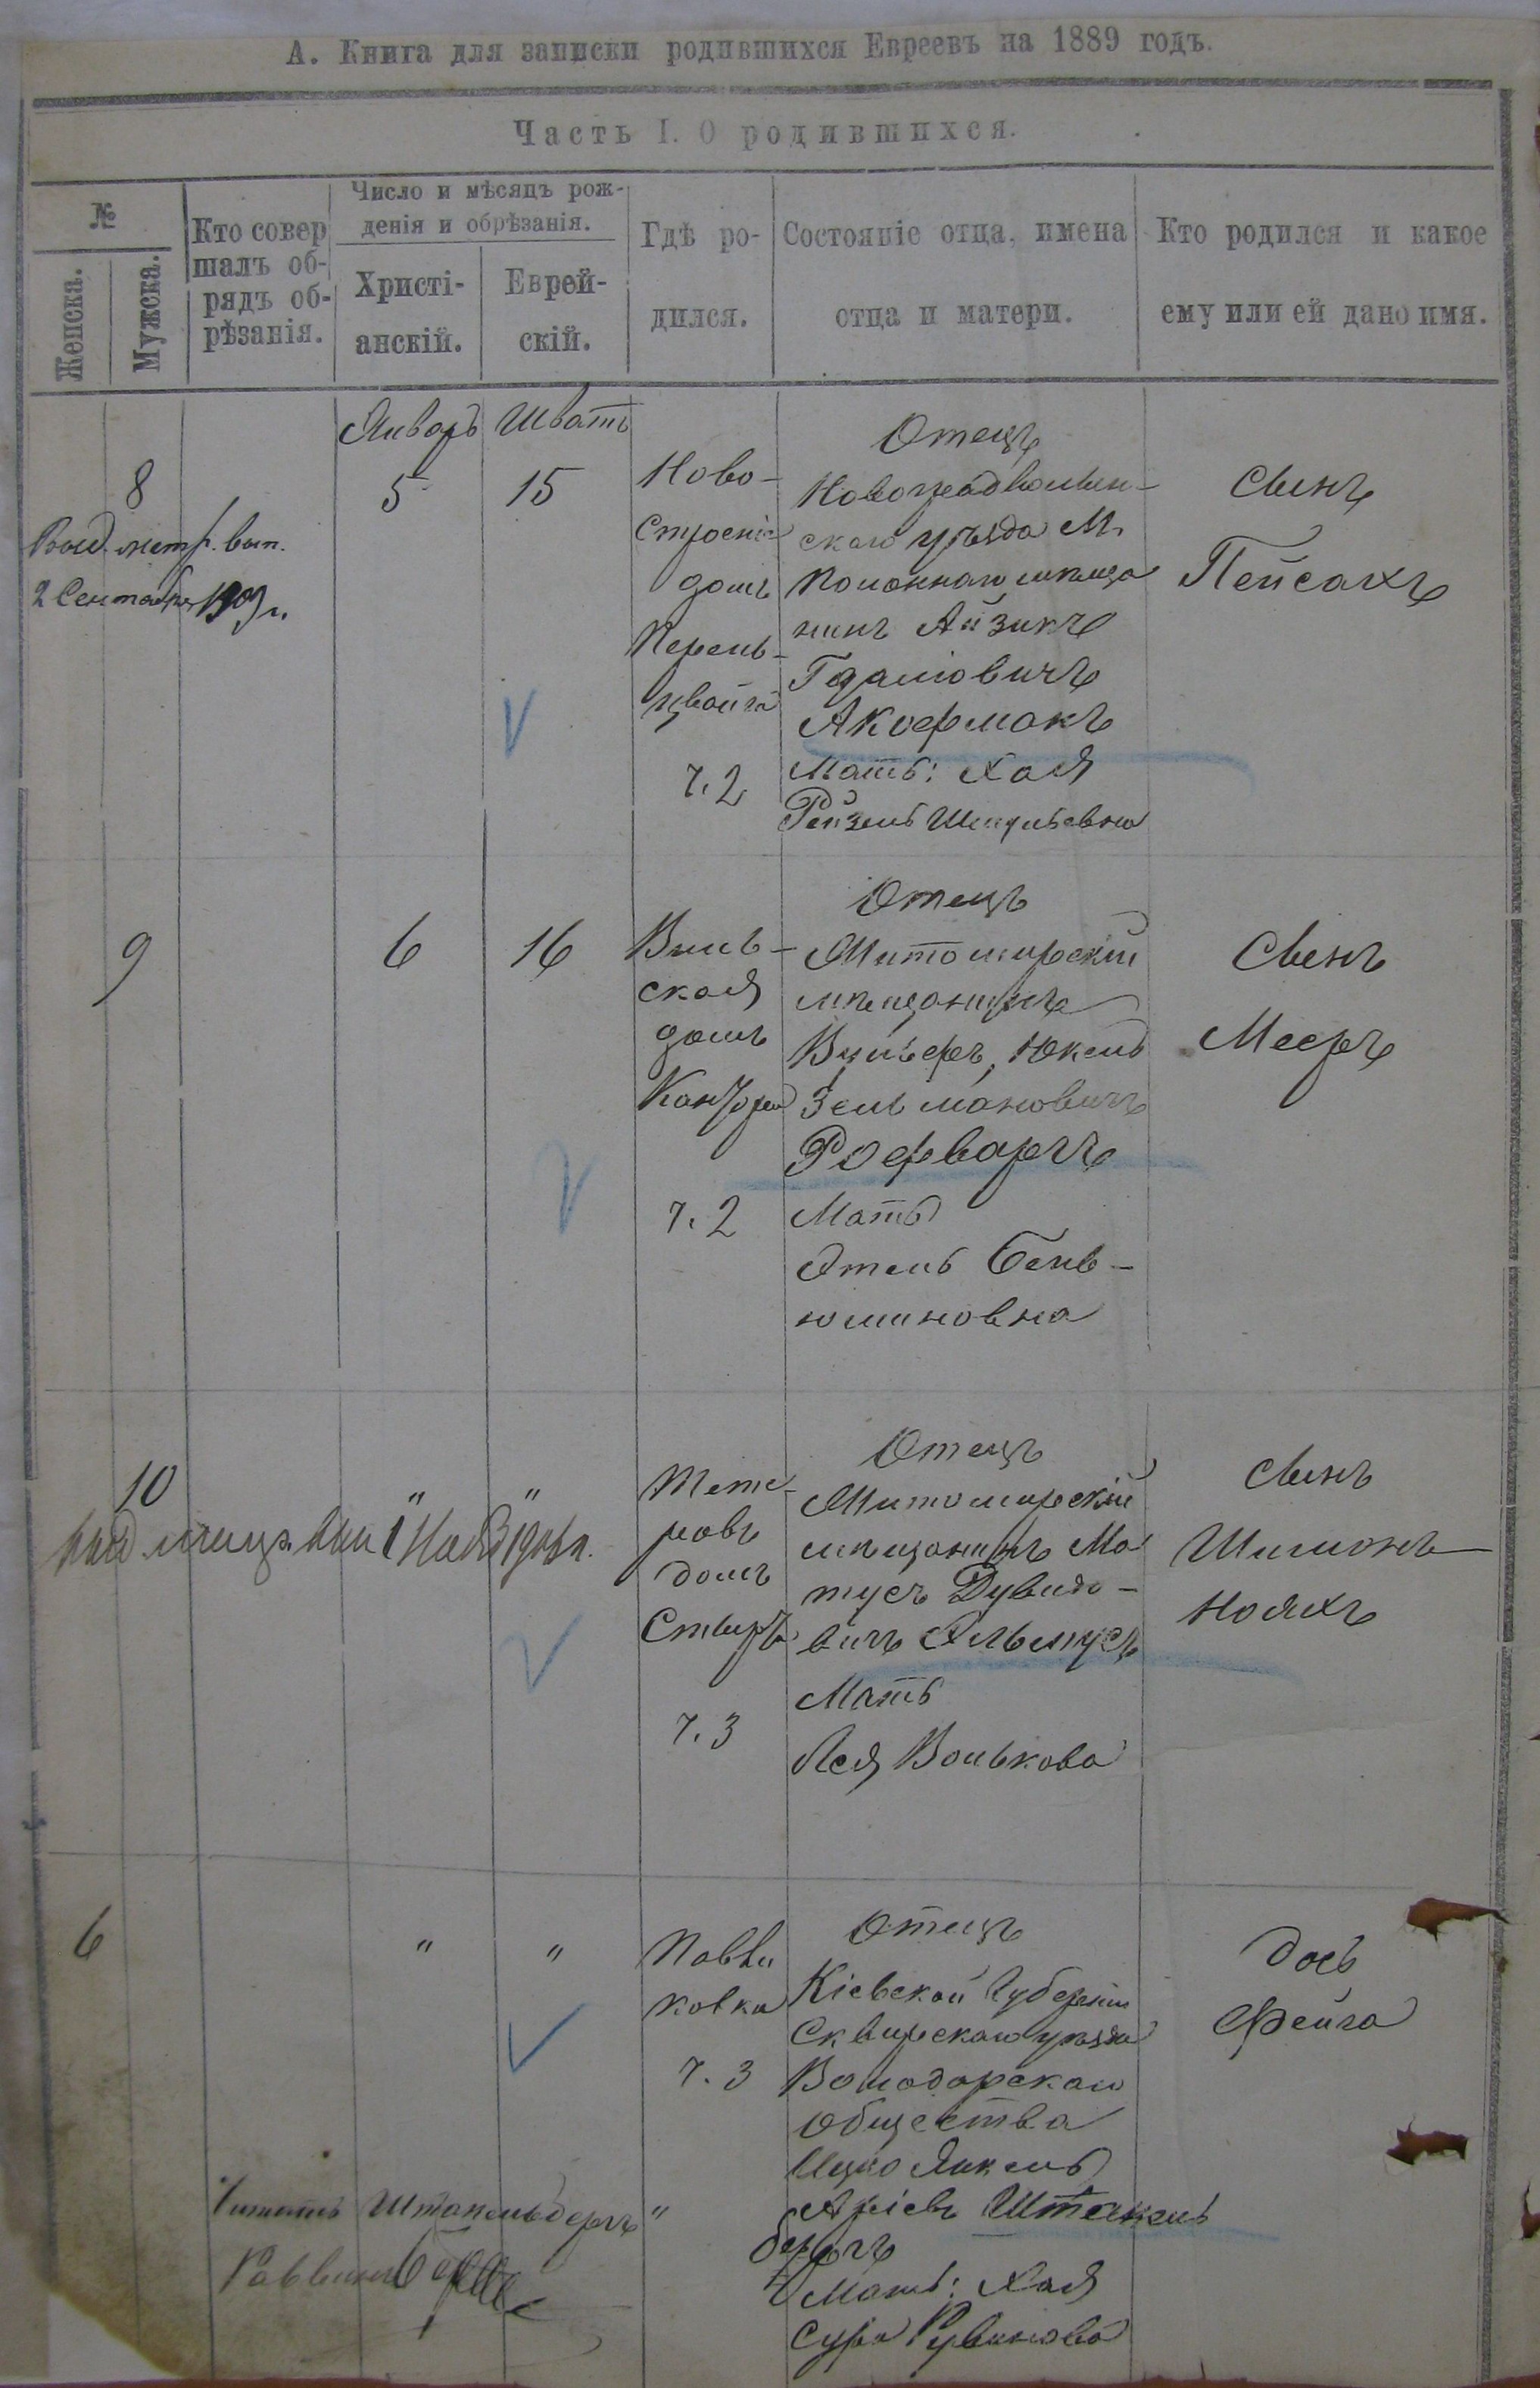 А. Книга для записки родившихся Евреевъ на 1889 годъ.
Часть I. О родившихся.
№
Женска.
Мужска.
Кто совер
шалъ об-
рядъ об-
рѣзанія.
Число и мѣсяцъ рож-
денія и обрѣзанія.
Христі-
анскій.
Еврей-
скій.
Гдѣ ро-
дился.
Состояніе отца, имена
отца и матери.
Кто родился и какое
ему или ей дано имя.
Январь
Шватъ
8
Выд. метр. вып.
2 Сентября 1909 г.
5
15
Ново-
строенія
домъ
Перель-
цвайга
ч. 2
Отецъ
Новоградволын-
скаго уѣзда М.
Полоннаго мѣща
нинъ Айзикъ
Гдаліовичъ
Акерманъ
Мать: Хая
Рейзель
Сынъ
Пейсахъ
9
6
16
Виль-
ская
домъ
ч. 2
Отецъ
Житомирскій
мѣщанинъ
Вульфъ, Юкель
Зельмановичъ
Рофваргъ
Мать
Этель Бень-
юминовна
Сынъ
Мееръ
10
выд. вып 1
"
"
Тете-
ровъ
домъ
ч. 3
Отецъ
Житомирскій
мѣщанинъ Ма
тусъ Дувидо-
вичъ Альмусъ
Мать
Лея Волькова
Сынъ
Шимонъ
Нояхъ
6
"
"
Павли
ковка
ч. 3
Отецъ
Кіевской Губерніи
Сквирскаго уѣзда
Володарскаго
общества
Ицко Янкель
Аріевъ Штакель
бергъ
Мать: Хая
Сура Рувинова
дочь
Фейга
Читать Штакельбергъ"
Раввинъ